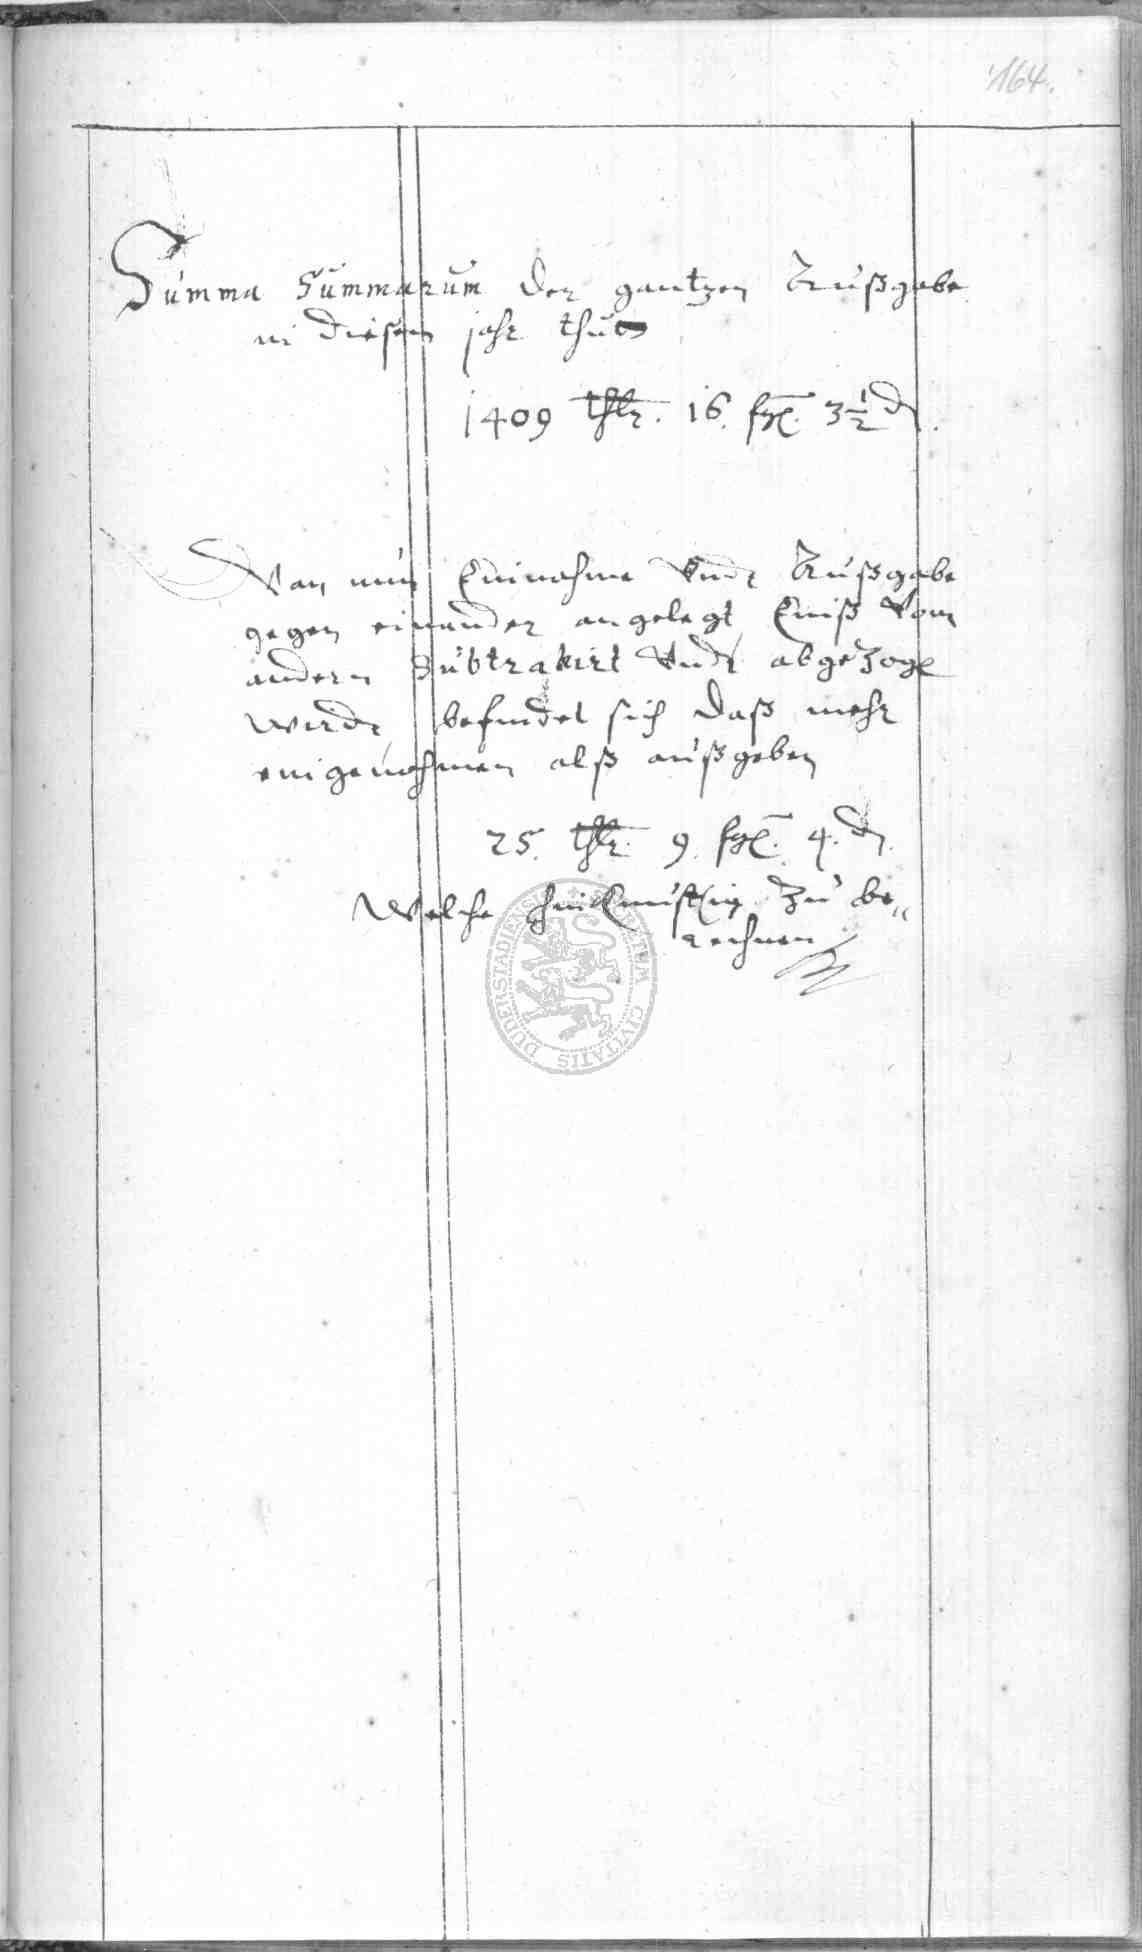 164.
Summa Summarum der gantzen Außgabe
in diesem jahr thut
1409 thlr. 16. sgl. 3 1/2 d.
Wan nun Einnahme undt Außgabe
gegen einander angelegt Eniß vom
andern Subtrahirt undt abgezogen
wirdt, befindet sich daß mehr
eingenohmen alß außgeben
25. thlr. 9. sgl. 4. d.
Welche zu be„
rechnen
SECRETUM CIVITATIS DUDERSTADIENSIS